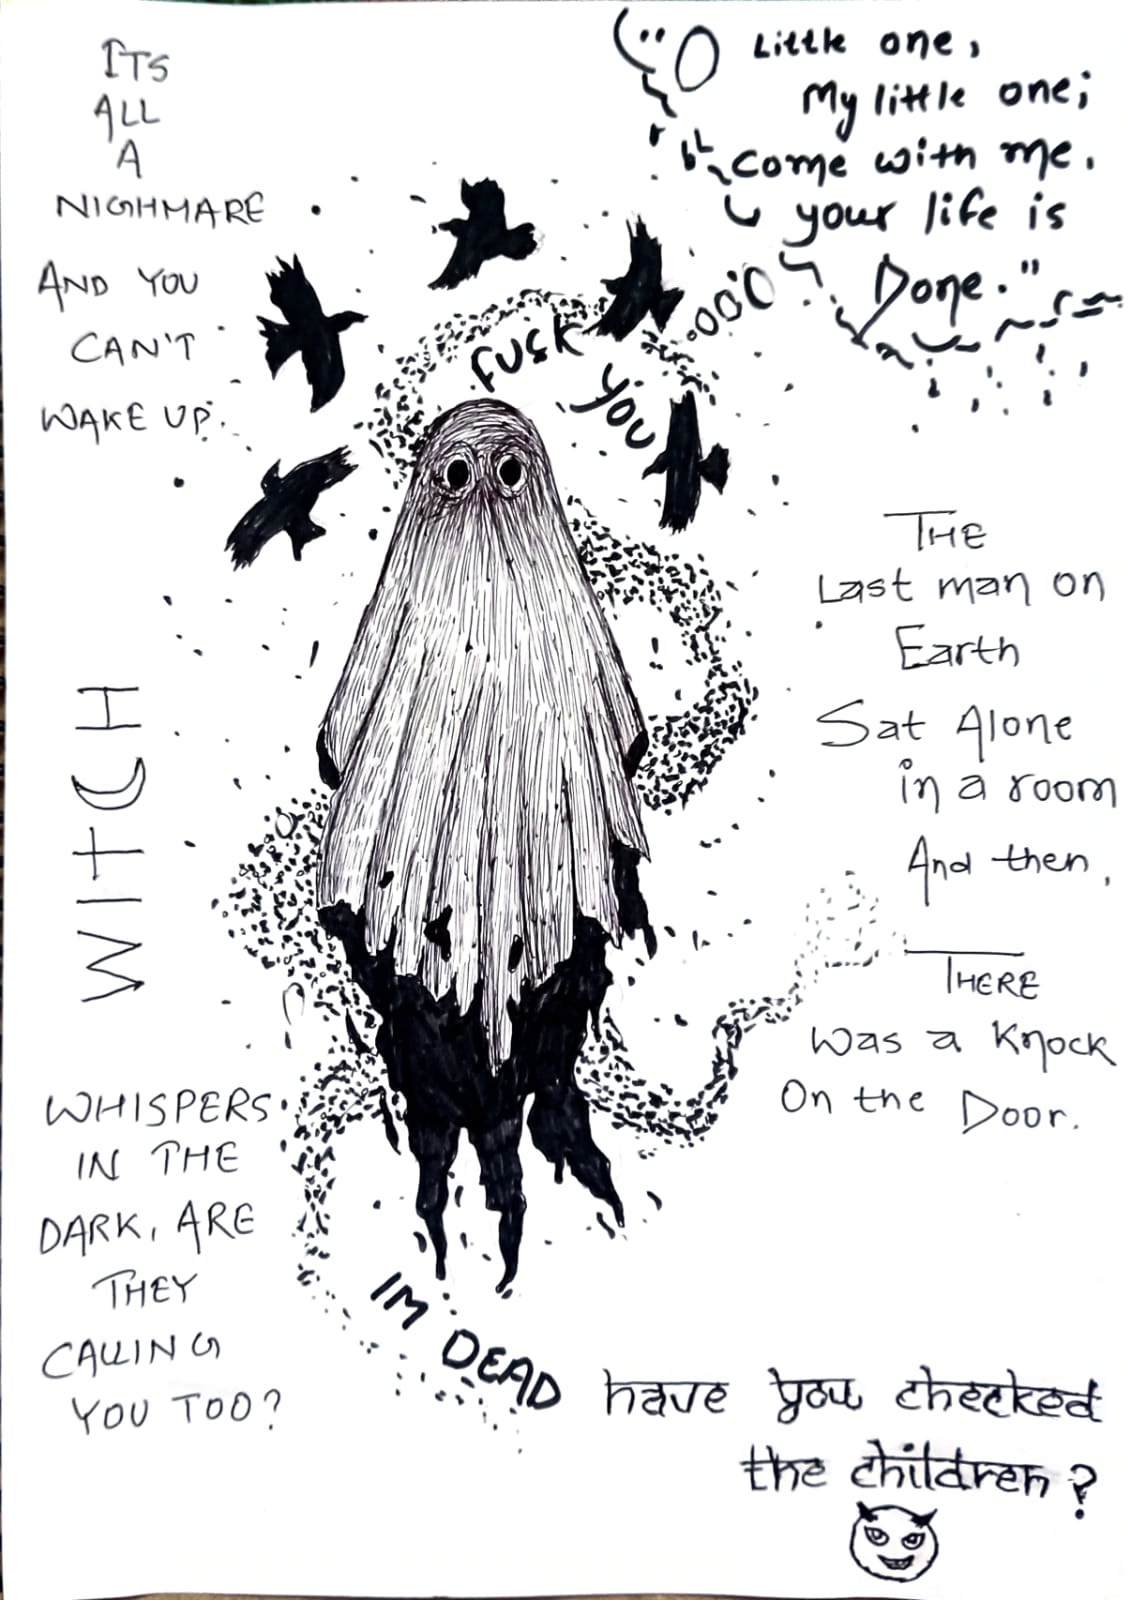 ITS
ALL
A
NIGHMARE
AND YOU
CAN'T
WAKE UP.
"O Little one,
My little one;
come with me.
your life is
Done."
FUCK
YOU
THE
Last man on
Earth
Sat Alone
in a room
And then,
THERE
was a Knock
On the Door.
WITCH
WHISPERS
IN THE
DARK, ARE
THEY
CALLING
YOU TOO?
IM DEAD
have you checked
the children?